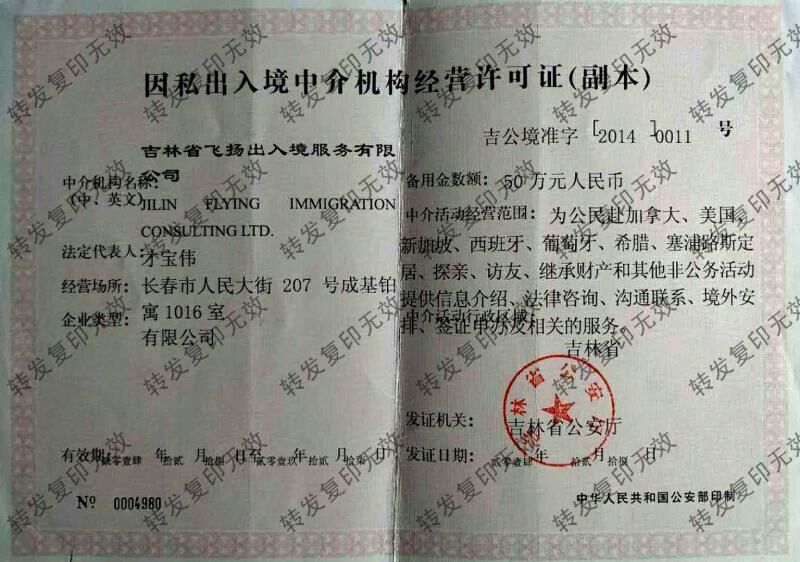 因私出入境中介机构经营许可证(副本)
吉公境准字[2014]0011 号
中介机构名称:
(中、英文)
吉林省飞扬出入境服务有限
公司
JILIN FLYING IMMIGRATION
CONSULTING LTD.
法定代表人:
才宝伟
经营场所:
长春市人民大街 207 号成基铂
寓 1016 室
企业类型:
有限公司
有效期: 贰零壹肆 年 拾贰 月 拾捌 日至 贰零壹玖 年 拾贰 月 拾柒 日
Nº 0004980
备用金数额: 50 万元人民币
中介活动经营范围: 为公民赴加拿大、美国、
新加坡、西班牙、葡萄牙、希腊、塞浦路斯定
居、探亲、访友、继承财产和其他非公务活动
提供信息介绍、法律咨询、沟通联系、境外安
排、签证申办及相关的服务。
中介活动行政区域:
吉林省
发证机关: 吉林省公安厅
发证日期: 贰零壹肆 年 拾贰 月 拾捌 日
中华人民共和国公安部印制
转发复印无效